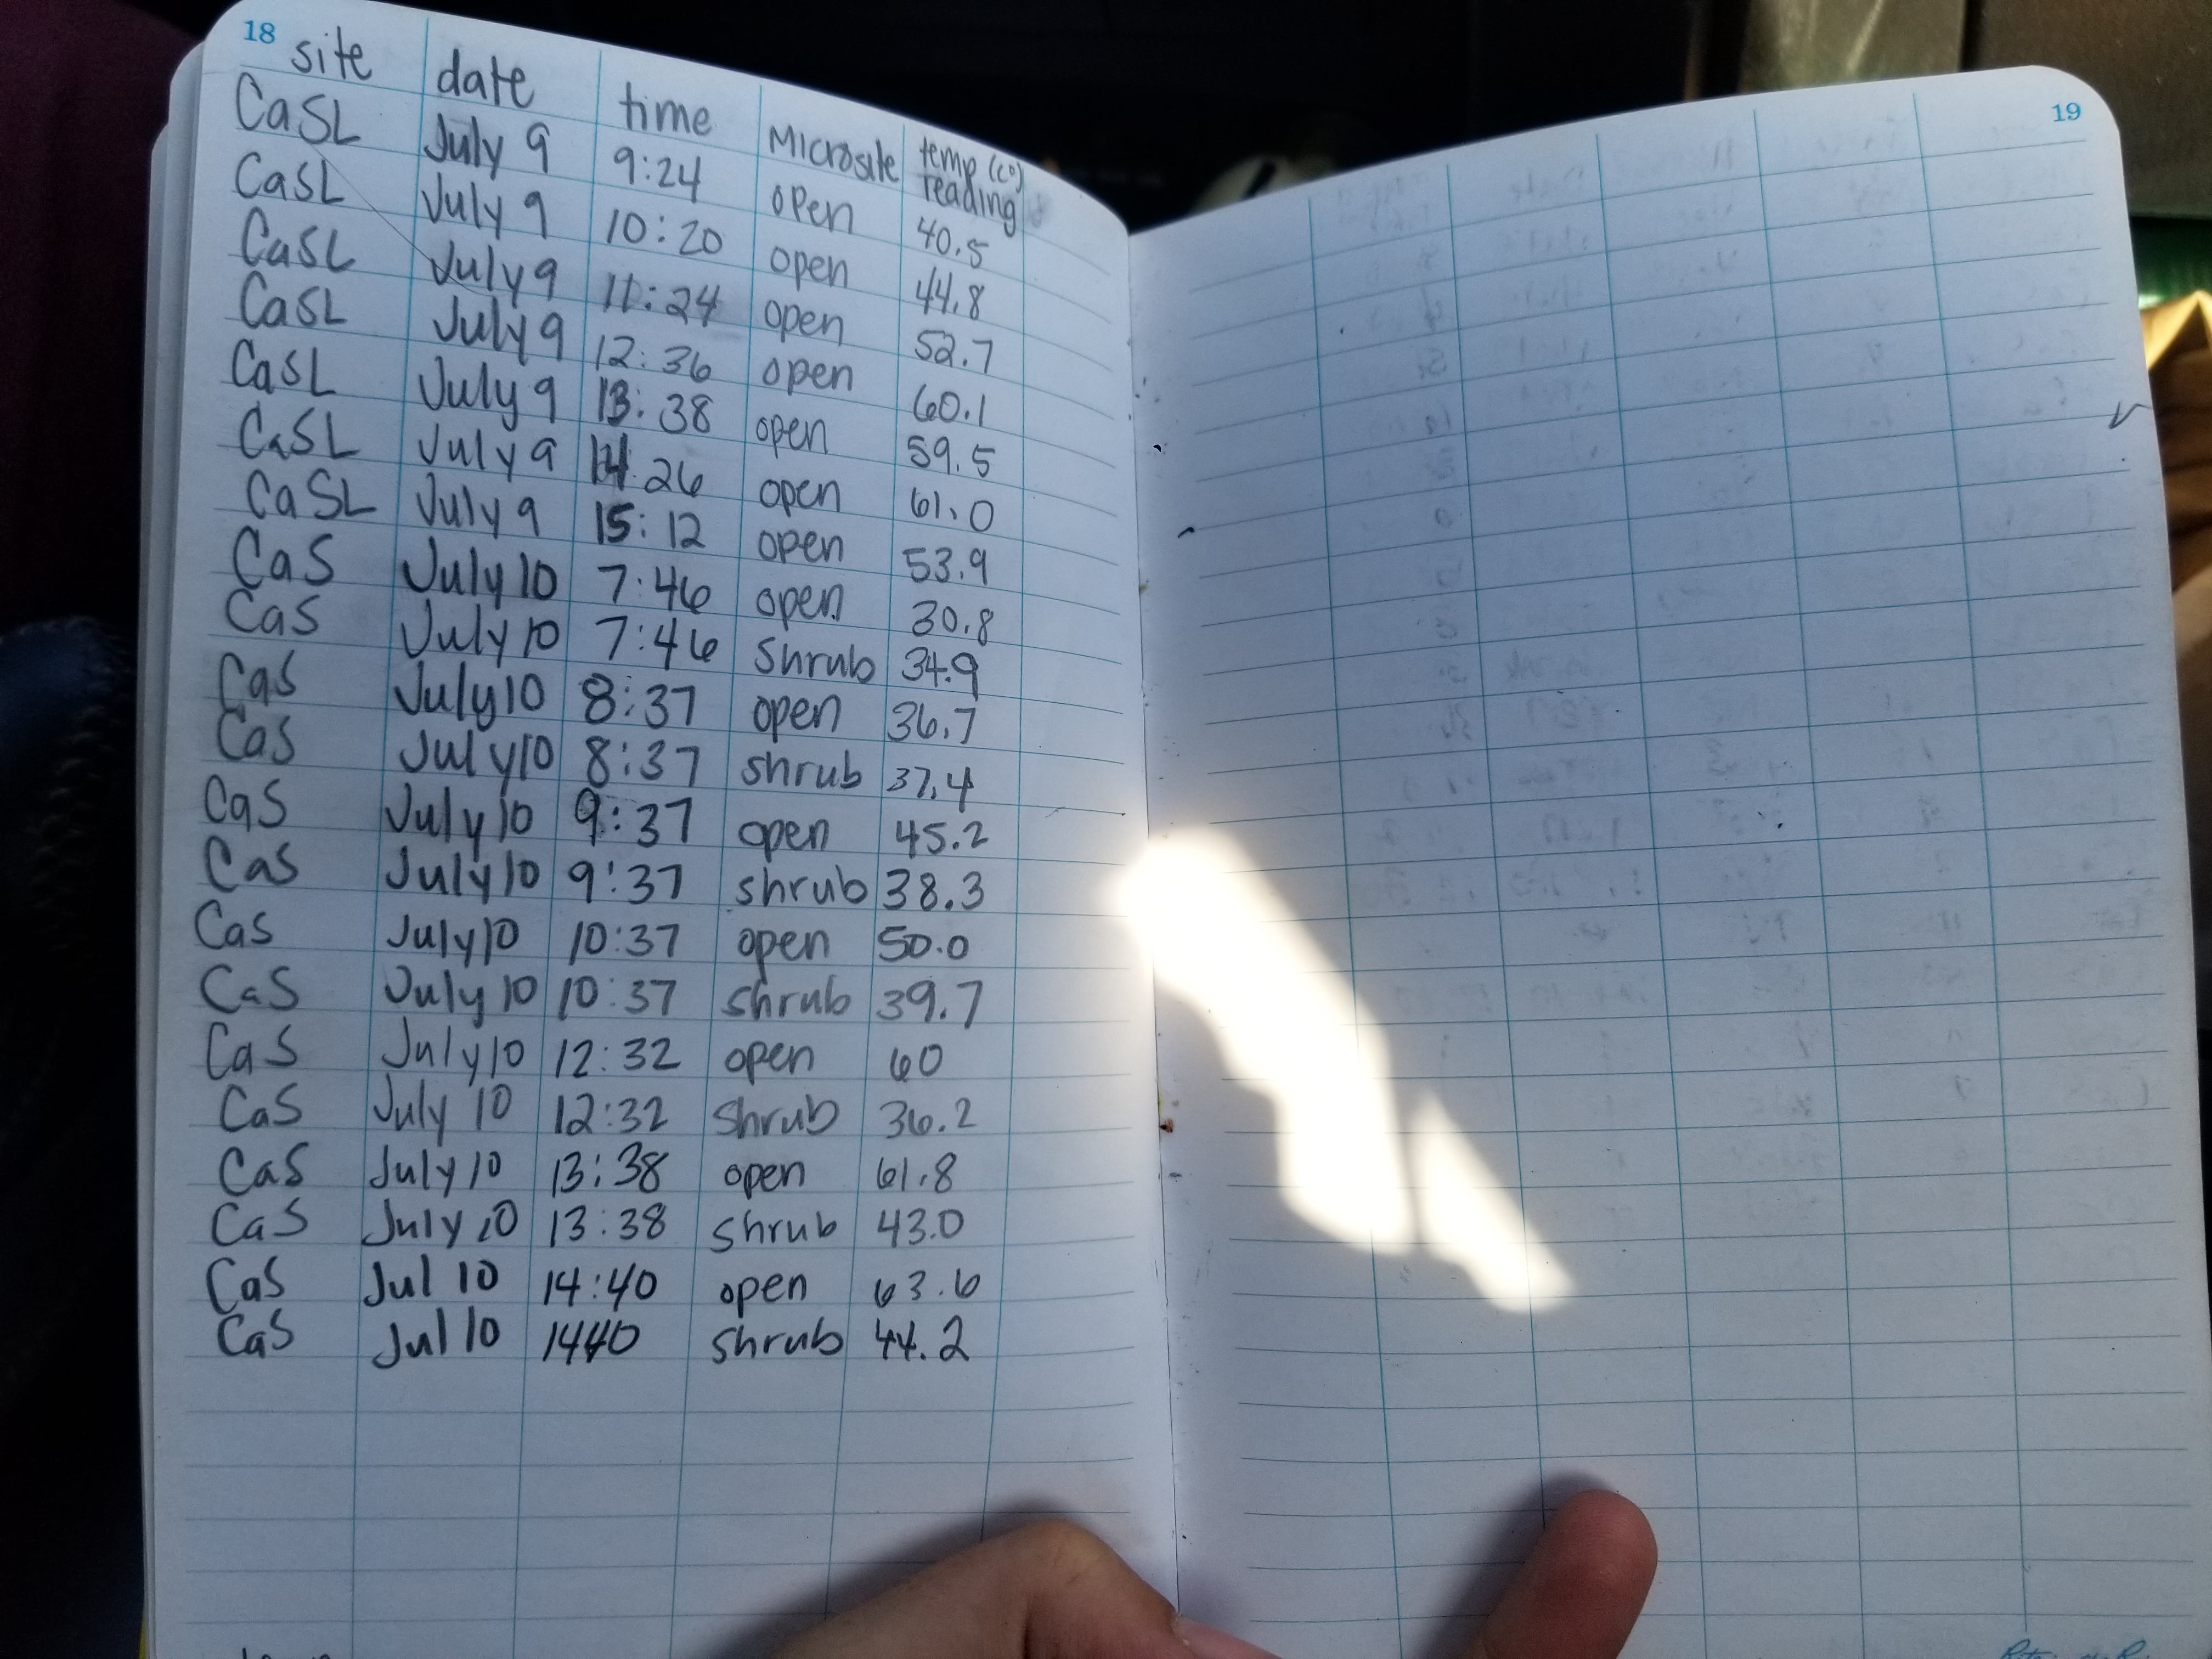 18 19
site date time Microsite temp (c°) reading
CaSL July 9 9:24 open 40.5
CaSL July 9 10:20 open 44.8
CaSL July 9 11:24 open 52.7
CaSL July 9 12:36 open 60.1
CaSL July 9 13:38 open 59.5
CaSL July 9 14:26 open 61.0
CaSL July 9 15:12 open 53.9
CaS July 10 7:46 open 30.8
CaS July 10 7:46 Shrub 34.9
CaS July 10 8:37 open 36.7
CaS July 10 8:37 shrub 37.4
CaS July 10 9:37 open 45.2
CaS July 10 9:37 shrub 38.3
CaS July 10 10:37 open 50.0
CaS July 10 10:37 shrub 39.7
CaS July 10 12:32 open 60
CaS July 10 12:32 shrub 36.2
CaS July 10 13:38 open 61.8
CaS July 10 13:38 shrub 43.0
CaS Jul 10 14:40 open 63.6
CaS Jul 10 1440 shrub 44.2